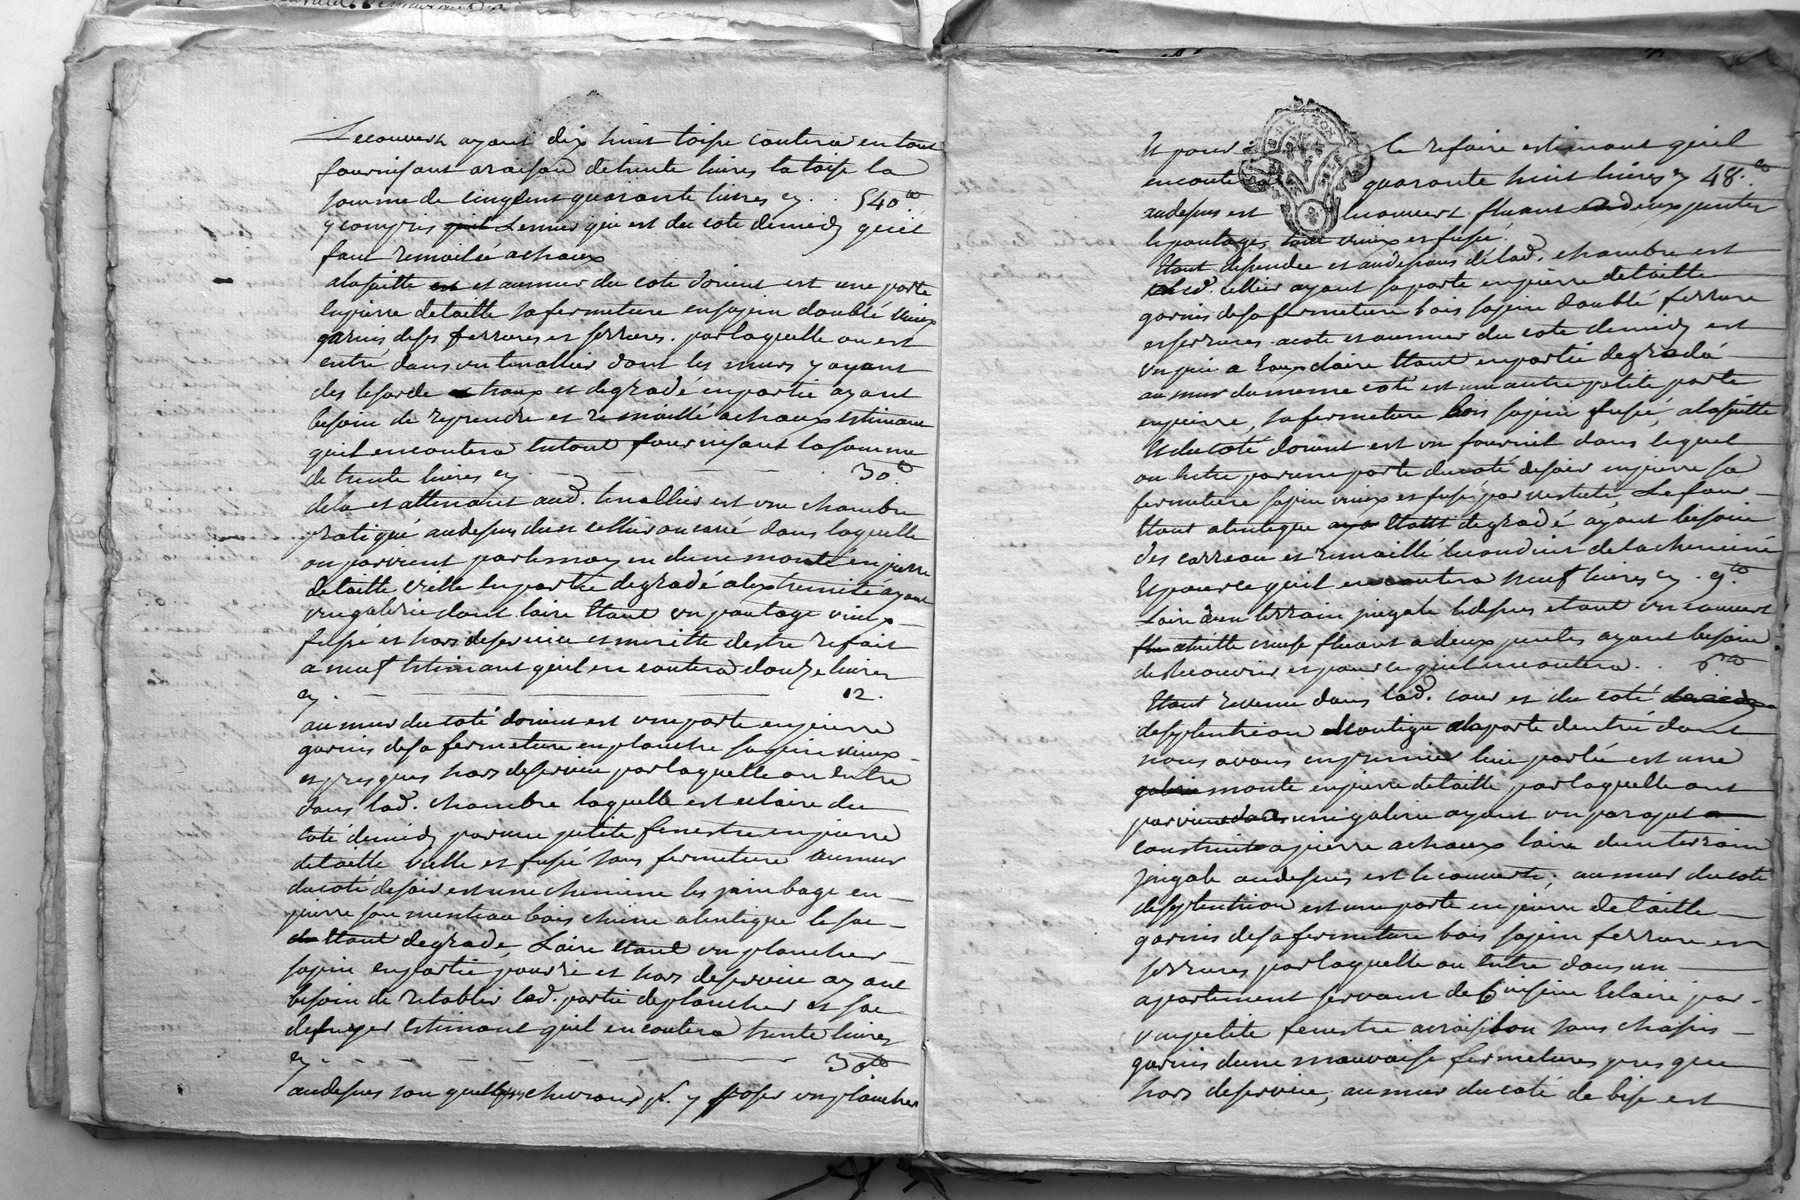 Lecouvert ayant dix huit toise coutera en tout
fournissant araison detrente livres la toise la
somme de cinq cent quarante livres cy . . 540.
y compris Lemur qui est du cote demidy qu'il
faut remaillé achaux
alasuitte et aumur du cote dorient est une porte
enpierre detaille sa fermeture ensapin doublé vieux
garnis deses ferrures et serrures. par laquelle on est
entré dans un tinallier dont les murs y ayant
des lesarde et degradé enpartie ayant
besoin de reprendre et remaillé achaux Estimant
quil encoutera entout fournissant la somme
de trente livres cy 30.
dela et attenant aud. tinallier est une chambre
pratiqué audessus dun cellier ou cave dans laquelle
on parvient par lemoyen dune monté enpierre
detaille vielle enpartie degradé alextremité ayant
une galerie dont laire Etant un pantage vieux
fusé et hors deservice et meritte destre refait
a neuf Estimant quil en coutera douze livres
cy. 12.
au mur du coté dorient est une porte enpierre
garnis desa fermeture enplanche sapin vieux
et presques hors deservice par laquelle on Entre
dans lad. chambre laquelle est eclairé du
coté demidy par une petite fenestre enpierre
detaille vielle et fusé sans fermeture aumur
ducoté desoir est une cheminé les jambage en
pierre son menteau bois chene alentique le foc
Etant degradé, Laire Etant un plancher
sapin enpartie pourri et hors deservice ayant
besoin de retablir lad. partie deplancher et foc
Estimant quil en coutera trente livres
cy. 30
audessus son quelques chevrons pr. y poser un plancher
Et pour le refaire estimant qu'il
encoutera quarante huit livres cy 48.
audessus est lecouvert fluant a deux pentes
le pantages tout vieux et fusé.
Etant dessendu et audessous de lad. chambre est
led. cellier ayant saporte enpierre detaille
garnis desa fermeture bois sapin doublé ferrure
et serrures acote et aumur du cote demidy est
un puit a Eaux claire Etant enpartie degradé
au mur du meme coté est une autre petite porte
enpierre, sa fermeture bois sapin fusé, alasuitte
Et du coté dorient est un fournil dans lequel
on Entre par une porte du coté desoir enpierre sa
fermeture sapin vieux et fusé par vestuté, Le four
Etant alentique degradé ayant besoin
des carreau et remaillé leconduit de la cheminé
Et pour ce quil en coutera neuf livres cy . 9.
Laire dun terrain inegale ledessus etant un couvert
atuille creuse fluant a deux pentes ayant besoin
de Recouvrir et pour ce quil encoutera . . 6
Etant Revenu dans lad. cour et du coté
deseptentrion alentique alaporte dentré dont
nous avons enpremier lieu parlé est une
monté enpierre detaille par laquelle ont
une galerie ayant un parapet
construit apierre achaux laire dun terrain
inegale audessus est le couvert, au mur du coté
deseptentrion est une porte enpierre detaille
garnis desa fermeture bois sapin ferrure et
serrures par laquelle on Entre dans un
apartement servant de Cuisine Eclairé par
une petite fenestre sans chassis
garnis dune mauvaise fermetures presque
hors deservice, au mur ducoté de bise est